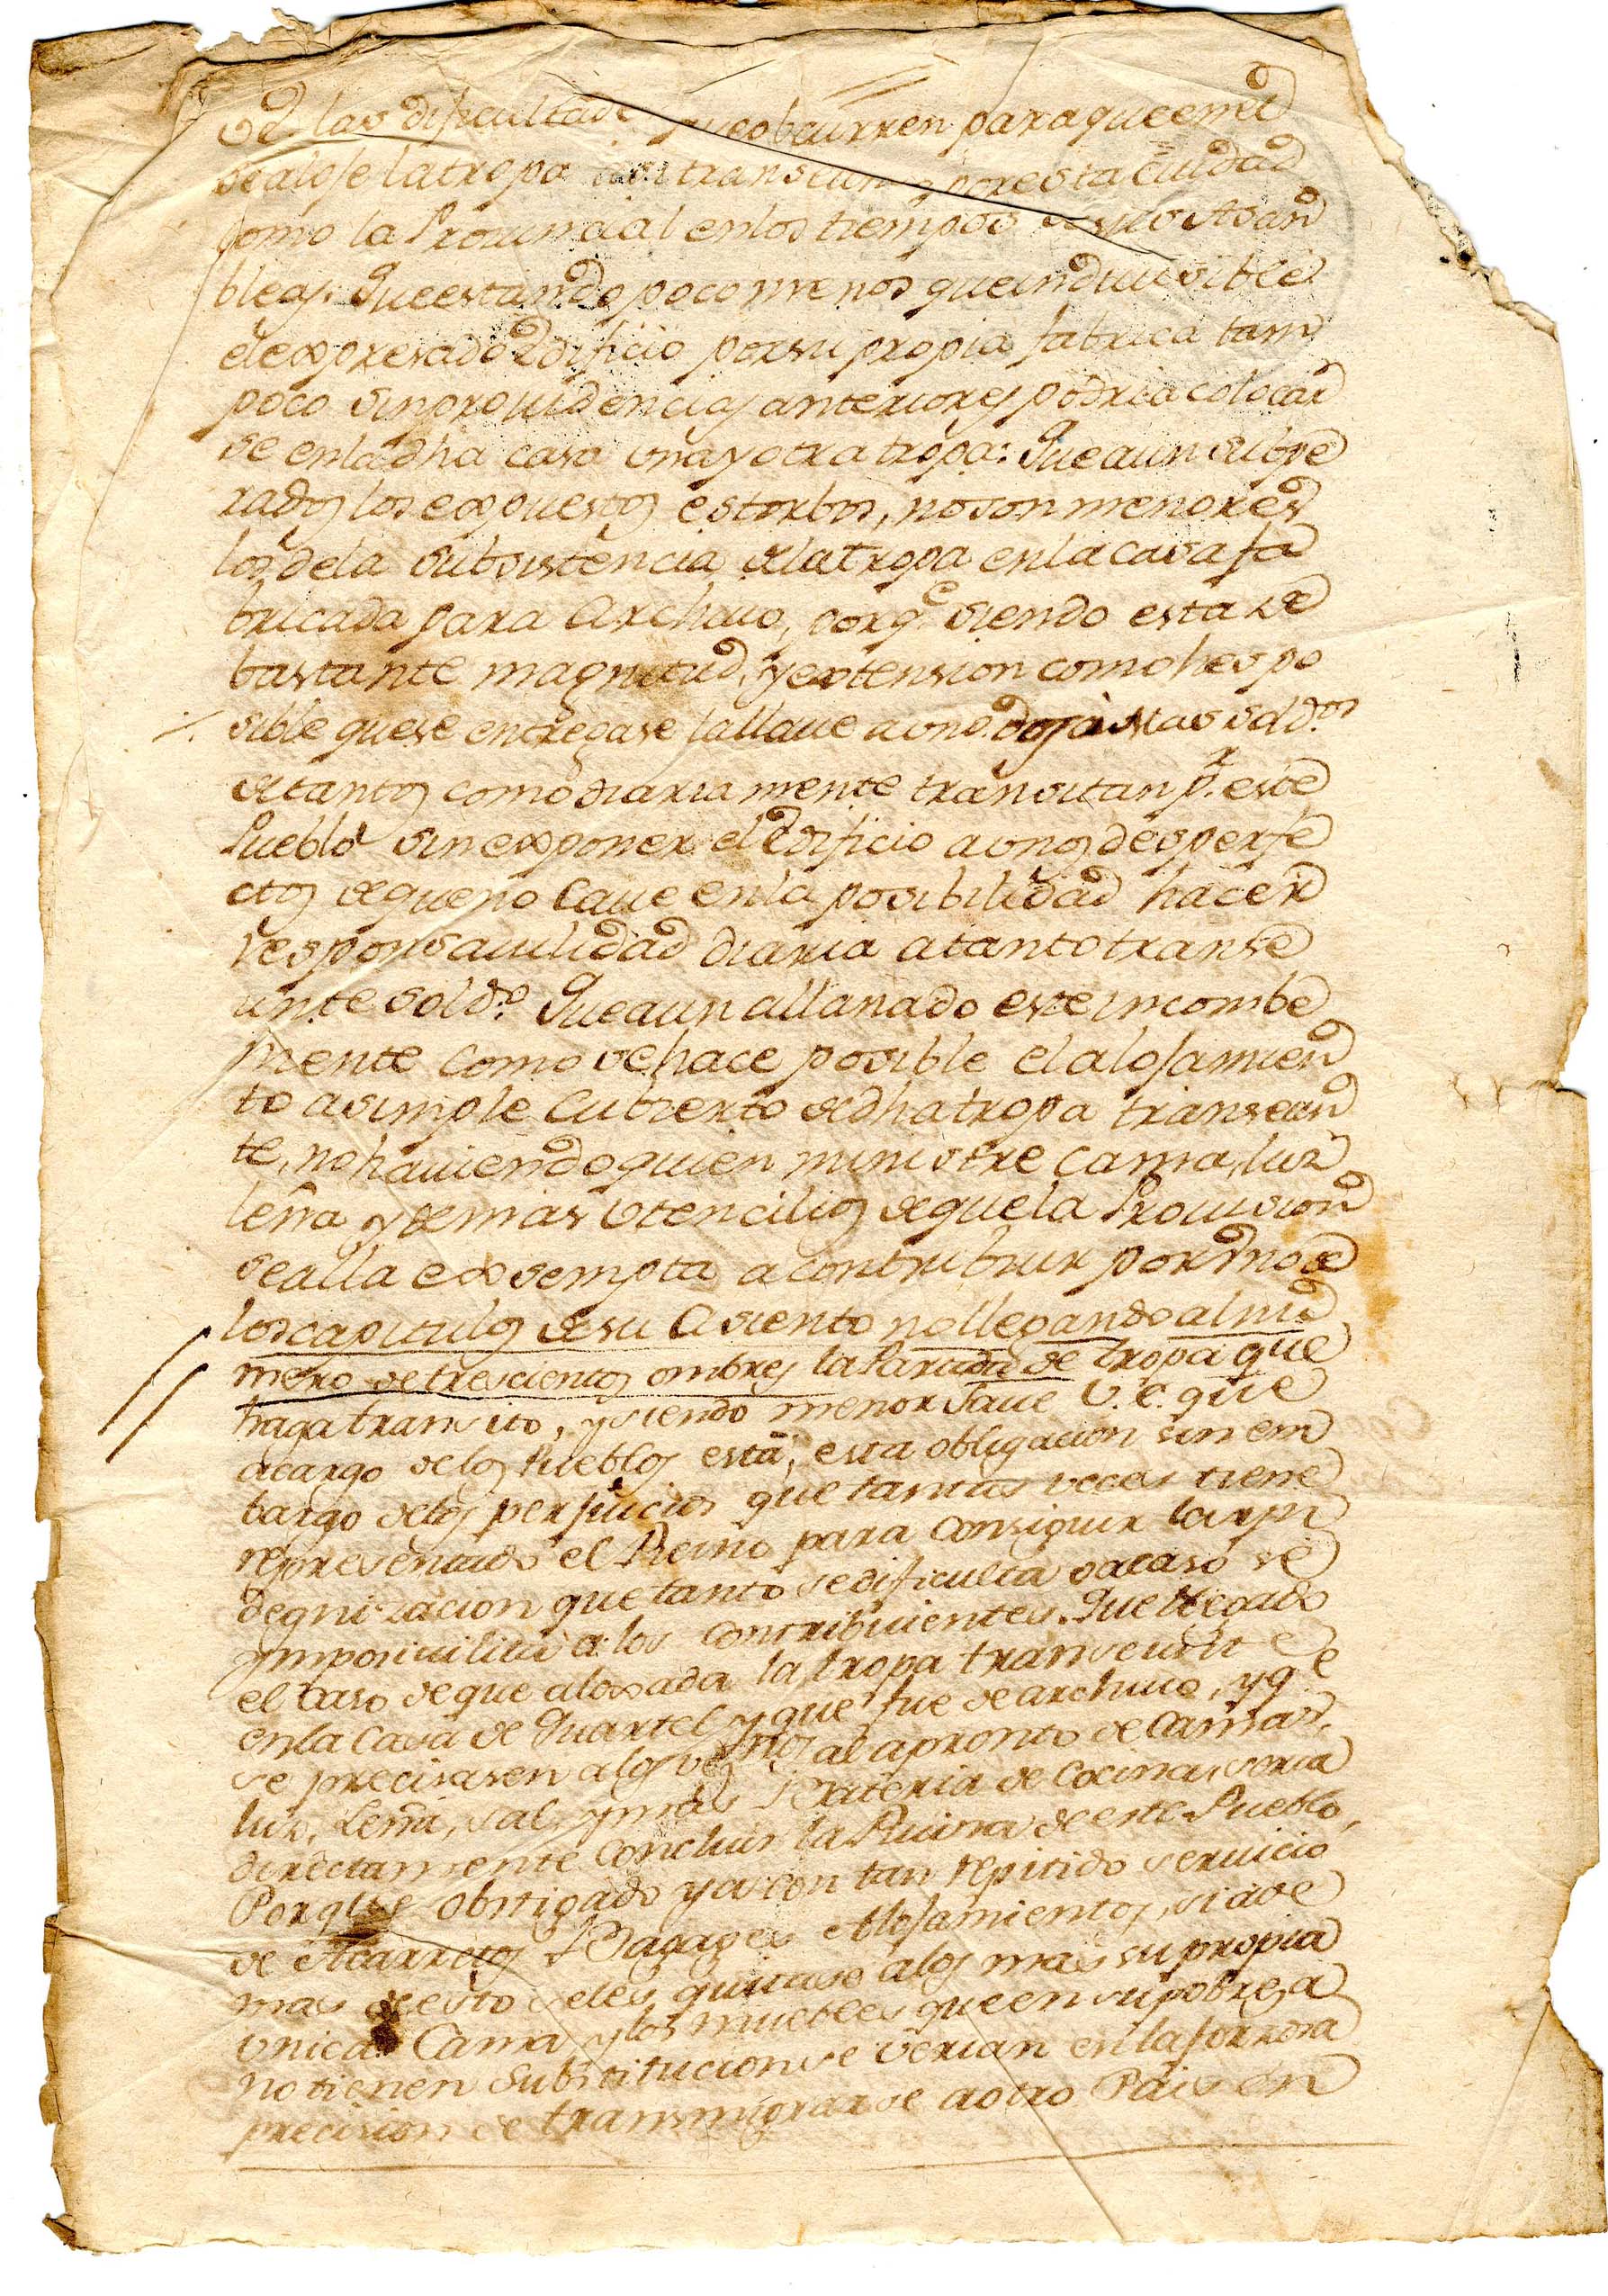 las dificultade que obcurren para que en el
se aloje la tropa asi transeun por esta ciudad
como la Provincial en los tiempos de sus Asan
bleas. Que estando poco menos que indiuisible
el expresado Edificio por su propia fabrica tam
poco sin prouidencias anteriores podria colocar
se en la dha casa una y otra tropa: Que aun supe
rados los expuestos estorbos, no son menores
los de la subsistencia de la tropa en la casa fa
bricada para Archiuo, porq.e siendo esta de
bastante magnitud, y extension como hes po
sible que se entregase la llaue a uno dos a mas sold.os
de tantos como diariamente transitan p.r este
Pueblo sin exponer el Edificio a unos desperfe
ctos de que no Caue en la posibilidad hacer
responsauilidad diaria a tanto transe
unte sold.o Que aun allanado este incombe
niente como se hace posible el alojamien
to a simple Cubierto de dha tropa transeun
te, no hauiendo quien ministre cama, luz
leña y demas Utencilios de que la Prouision
se alla exsempta a contribuir por uno de
los capitulos de su Asiento no llegando al nu
mero de trescientos ombres la Partida de tropa que
haga transito, y siendo menor Saue V.E. que
acargo de los Pueblos está, esta obligacion sin em
bargo de los perjuicios que tantas veces tiene
representado el Reino para Consiguir la yn
degnizacion que tanto se dificulta o acaso se
ymposiuilita a los Contribuientes. Que llegado
el caso de que aloxada la tropa transeunte
en la Casa de Quartel y que fue de archiuo, y q.e
se precisasen a los vez.nos al apronto de Camas,
luz, Leña, sal, y más Vateria de Cocina, seria
directamente concluir la Ruina de este Pueblo,
Porque obstigado ya con tan repitido seruicio
de Acarretos Bagages Alojamientos, si a de
mas de esto se les quitase a los mas su propia
unica Cama y los muebles que en su pobreza
no tienen Substitucion se verian en la forzosa
precision de transmigrarse a otro Pais en